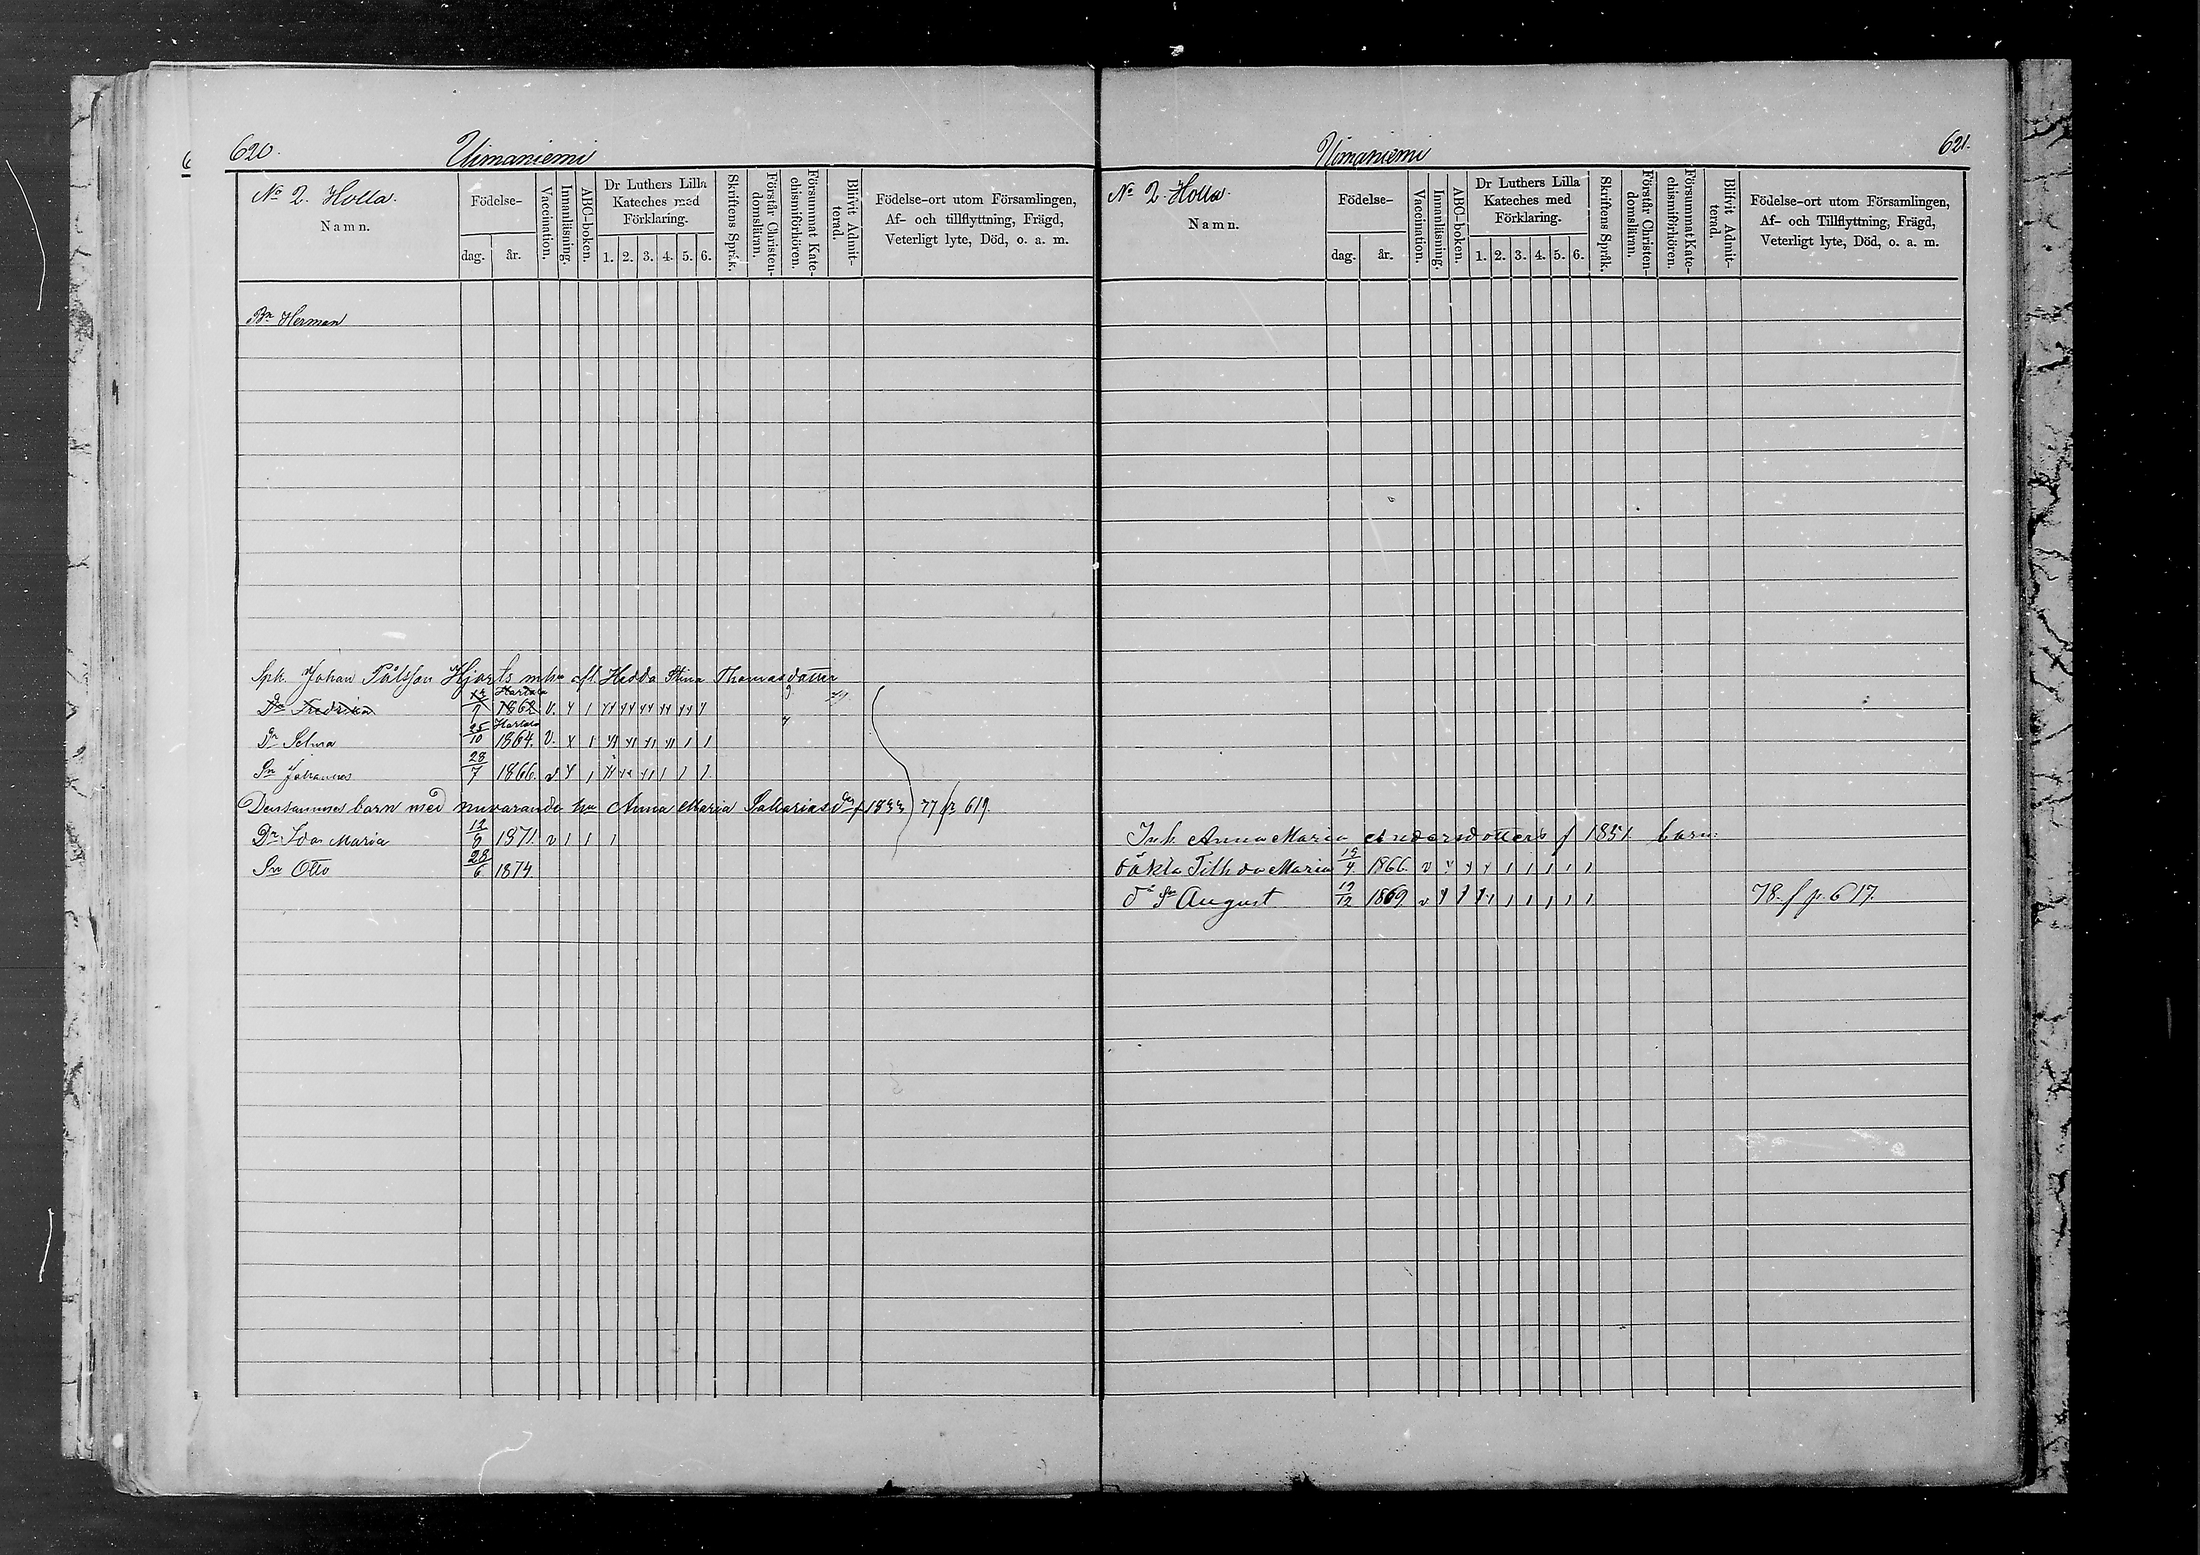 620.
Uimaniemi
No 2. Holla.
Namn.
Födelse-
dag. år.
Vaccination.
Innanläsning.
ABC-boken.
Dr Luthers Lilla Kateches med Förklaring.
1. 2. 3. 4. 5. 6.
Skriftens Språk.
Förstår Christendomsläran.
Försummat Katechismiförhören.
Blifvit Admitterad.
Födelse-ort utom Församlingen, Af- och tillflyttning, Frägd, Veterligt lyte, Död, o. a. m.
Bn Herman
Johan Pålsson Hjorts m hu Hedda Stina Thomasdotter
Hartola
Dr Fredrika 1862 v.
Hartola
Dr Selma 25/10 1864. v.
Sn Johannes 28/7 1866. v
Densammes barn med nuvarande hu Anna Maria f 1833 77 fr 619.
Dr Ida Maria 12/9 1871. v
Sn Otto 28/6 1874
621.
Uimaniemi
No 2. Holla.
Namn.
Födelse-
dag. år.
Vaccination.
Innanläsning.
ABC-boken.
Dr Luthers Lilla Kateches med Förklaring.
1. 2. 3. 4. 5. 6.
Skriftens Språk.
Förstår Christendomsläran.
Försummat Katechismiförhören.
Blifvit Admitterad.
Födelse-ort utom Församlingen, Af- och Tillflyttning, Frägd, Veterligt lyte, Död, o. a. m.
Inh. Anna Maria Andersdotters f 1831 barn:
oäkta Tilhda Maria 15/4 1866. v
Sn August 19/12 1869. v 78. f p. 617.